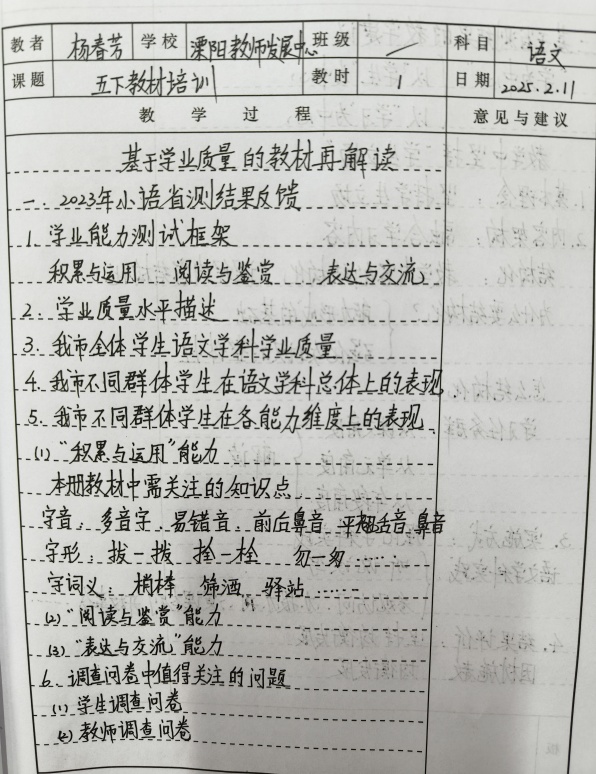 教者 杨春芳 学校 溧阳教师发展中心 班级 / 科目 语文
课题 五下教材培训 教时 1 日期 2025.2.11
教学过程 意见与建议
基于学业质量的教材再解读
一、2023年小语省测结果反馈
1. 学业能力测试框架
积累与运用 阅读与鉴赏 表达与交流
2. 学业质量水平描述
3. 我市全体学生语文学科学业质量
4. 我市不同群体学生在语文学科总体上的表现
5. 我市不同群体学生在各能力维度上的表现
(1) “积累与运用”能力
本册教材中需关注的知识点
字音：多音字、易错音、前后鼻音、平翘舌音、鼻音
字形：拔一拨 拴一栓 勿一匆……
字词义：梢棒 筛酒 驿站……
(2) “阅读与鉴赏”能力
(3) “表达与交流”能力
6. 调查问卷中值得关注的问题
(1) 学生调查问卷
(2) 教师调查问卷